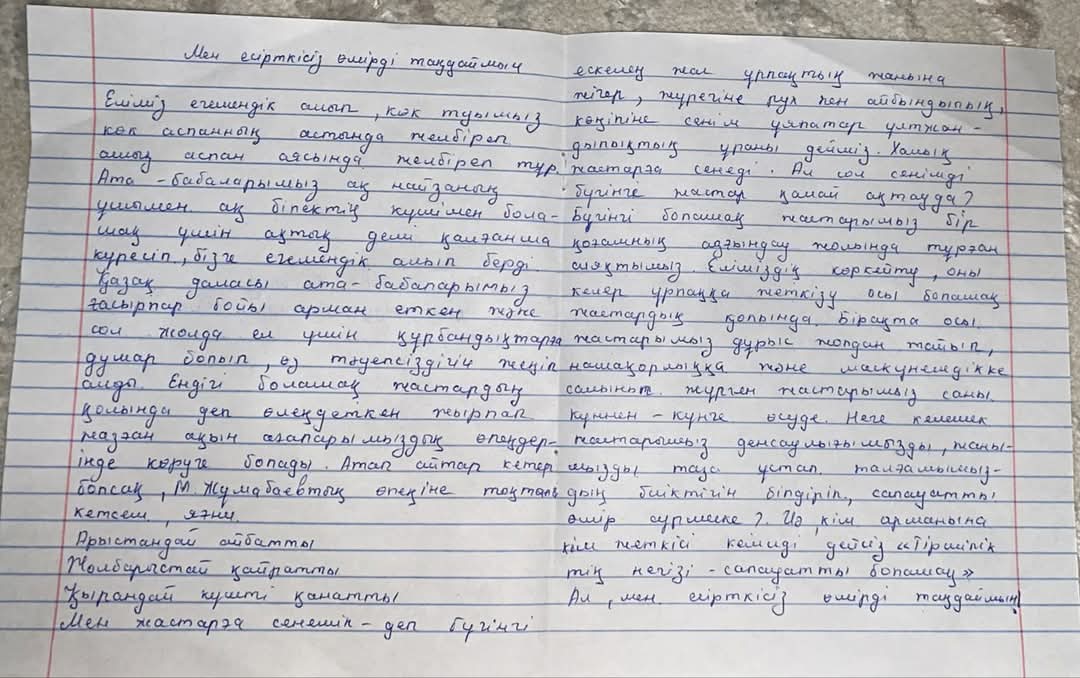 Мен есірткісіз өмірді таңдаймын
Еліміз егемендік алып, көк туымыз
көк аспанның астында желбіреп
ашық аспан аясында желбіреп тұр.
Ата-бабаларымыз ақ найзаның
ұшымен ақ білектің күшімен бола-
шақ үшін ақтық демі қалғанша
күресіп, бізге егемендік алып берді.
Қазақ даласы ата-бабаларымыз
ғасырлар бойы арман еткен және
сол жолда ел үшін құрбандықтарға
думар болып, өз тәуелсіздігін жеңіп
алды. Ендігі болашақ жастардың
қолында деп өлеңдеткен жырлап
жазған ақын ағаларымыздың өлеңдер-
інде көруге болады. Атап айтар кетер
болсақ, М. Жумабаевтың өлеңіне тоқталып
кетсем, яғни.
Арыстандай айбатты
Жолбарыстай қайратты
Қырандай күшті қанатты
Мен жастарға сенемін - деп бүгінгі
ескелең жас ұрпақтың жанына
жігер, жүрегіне рух пен айбындылық,
көңіліне сенім ұялатар ұлтжан-
дылықтың ұраны дейміз. Халық
жастарға сенеді. Ал сол сенімді
бүгінге жастар қалай ақтауда?
Бүгінгі болашақ жастарымыз бір
қоғамның аязындау жолында тұрған
сияқтымыз. Еліміздің көркейту, оны
келер ұрпаққа жеткізу осы болашақ
жастардың қолында. Бірақта осы
жастарымыз дұрыс жолдан тайып,
нашақорлыққа және маскүнемдікке
салынып жүрген жастарымыз саны
күннен-күнге өсуде. Неге келешек
жастарымыз денсаулығымызды, жаны-
мызды таза ұстап, талғамымыз-
дың биіктігін білдіріп, салауатты
өмір сүрмеске? Иә, кім арманына
кім жеткісі келмиді дейсіз «Тіршілік
тің негізі - салауатты болашақ»
Ал, мен есірткісіз өмірді таңдаймын!